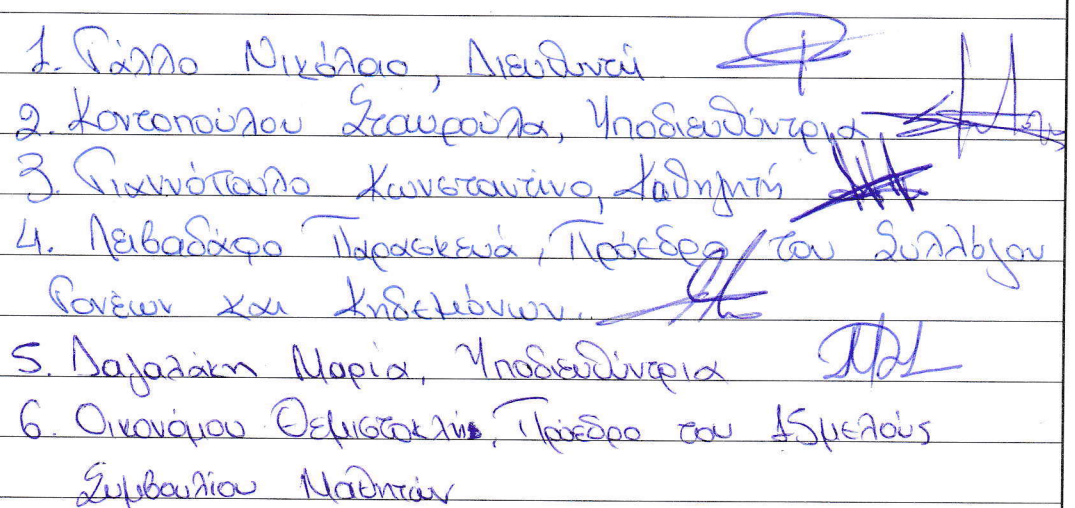 1. Γάλλο Νικόλαο, Διευθυντή
2. Κοντοπούλου Σταυρούλα, Υποδιευθύντρια,
3. Γιαννόπουλο Κωνσταντίνο, Καθηγητή
4. Λειβαδάρο Παρασκευά, Πρόεδρο του Συλλόγου
Γονέων και Κηδεμόνων.
5. Δαγαλάκη Μαρία, Υποδιευθύντρια
6. Οικονόμου Θεμιστοκλή, Πρόεδρο του 15μελούς
Συμβουλίου Μαθητών